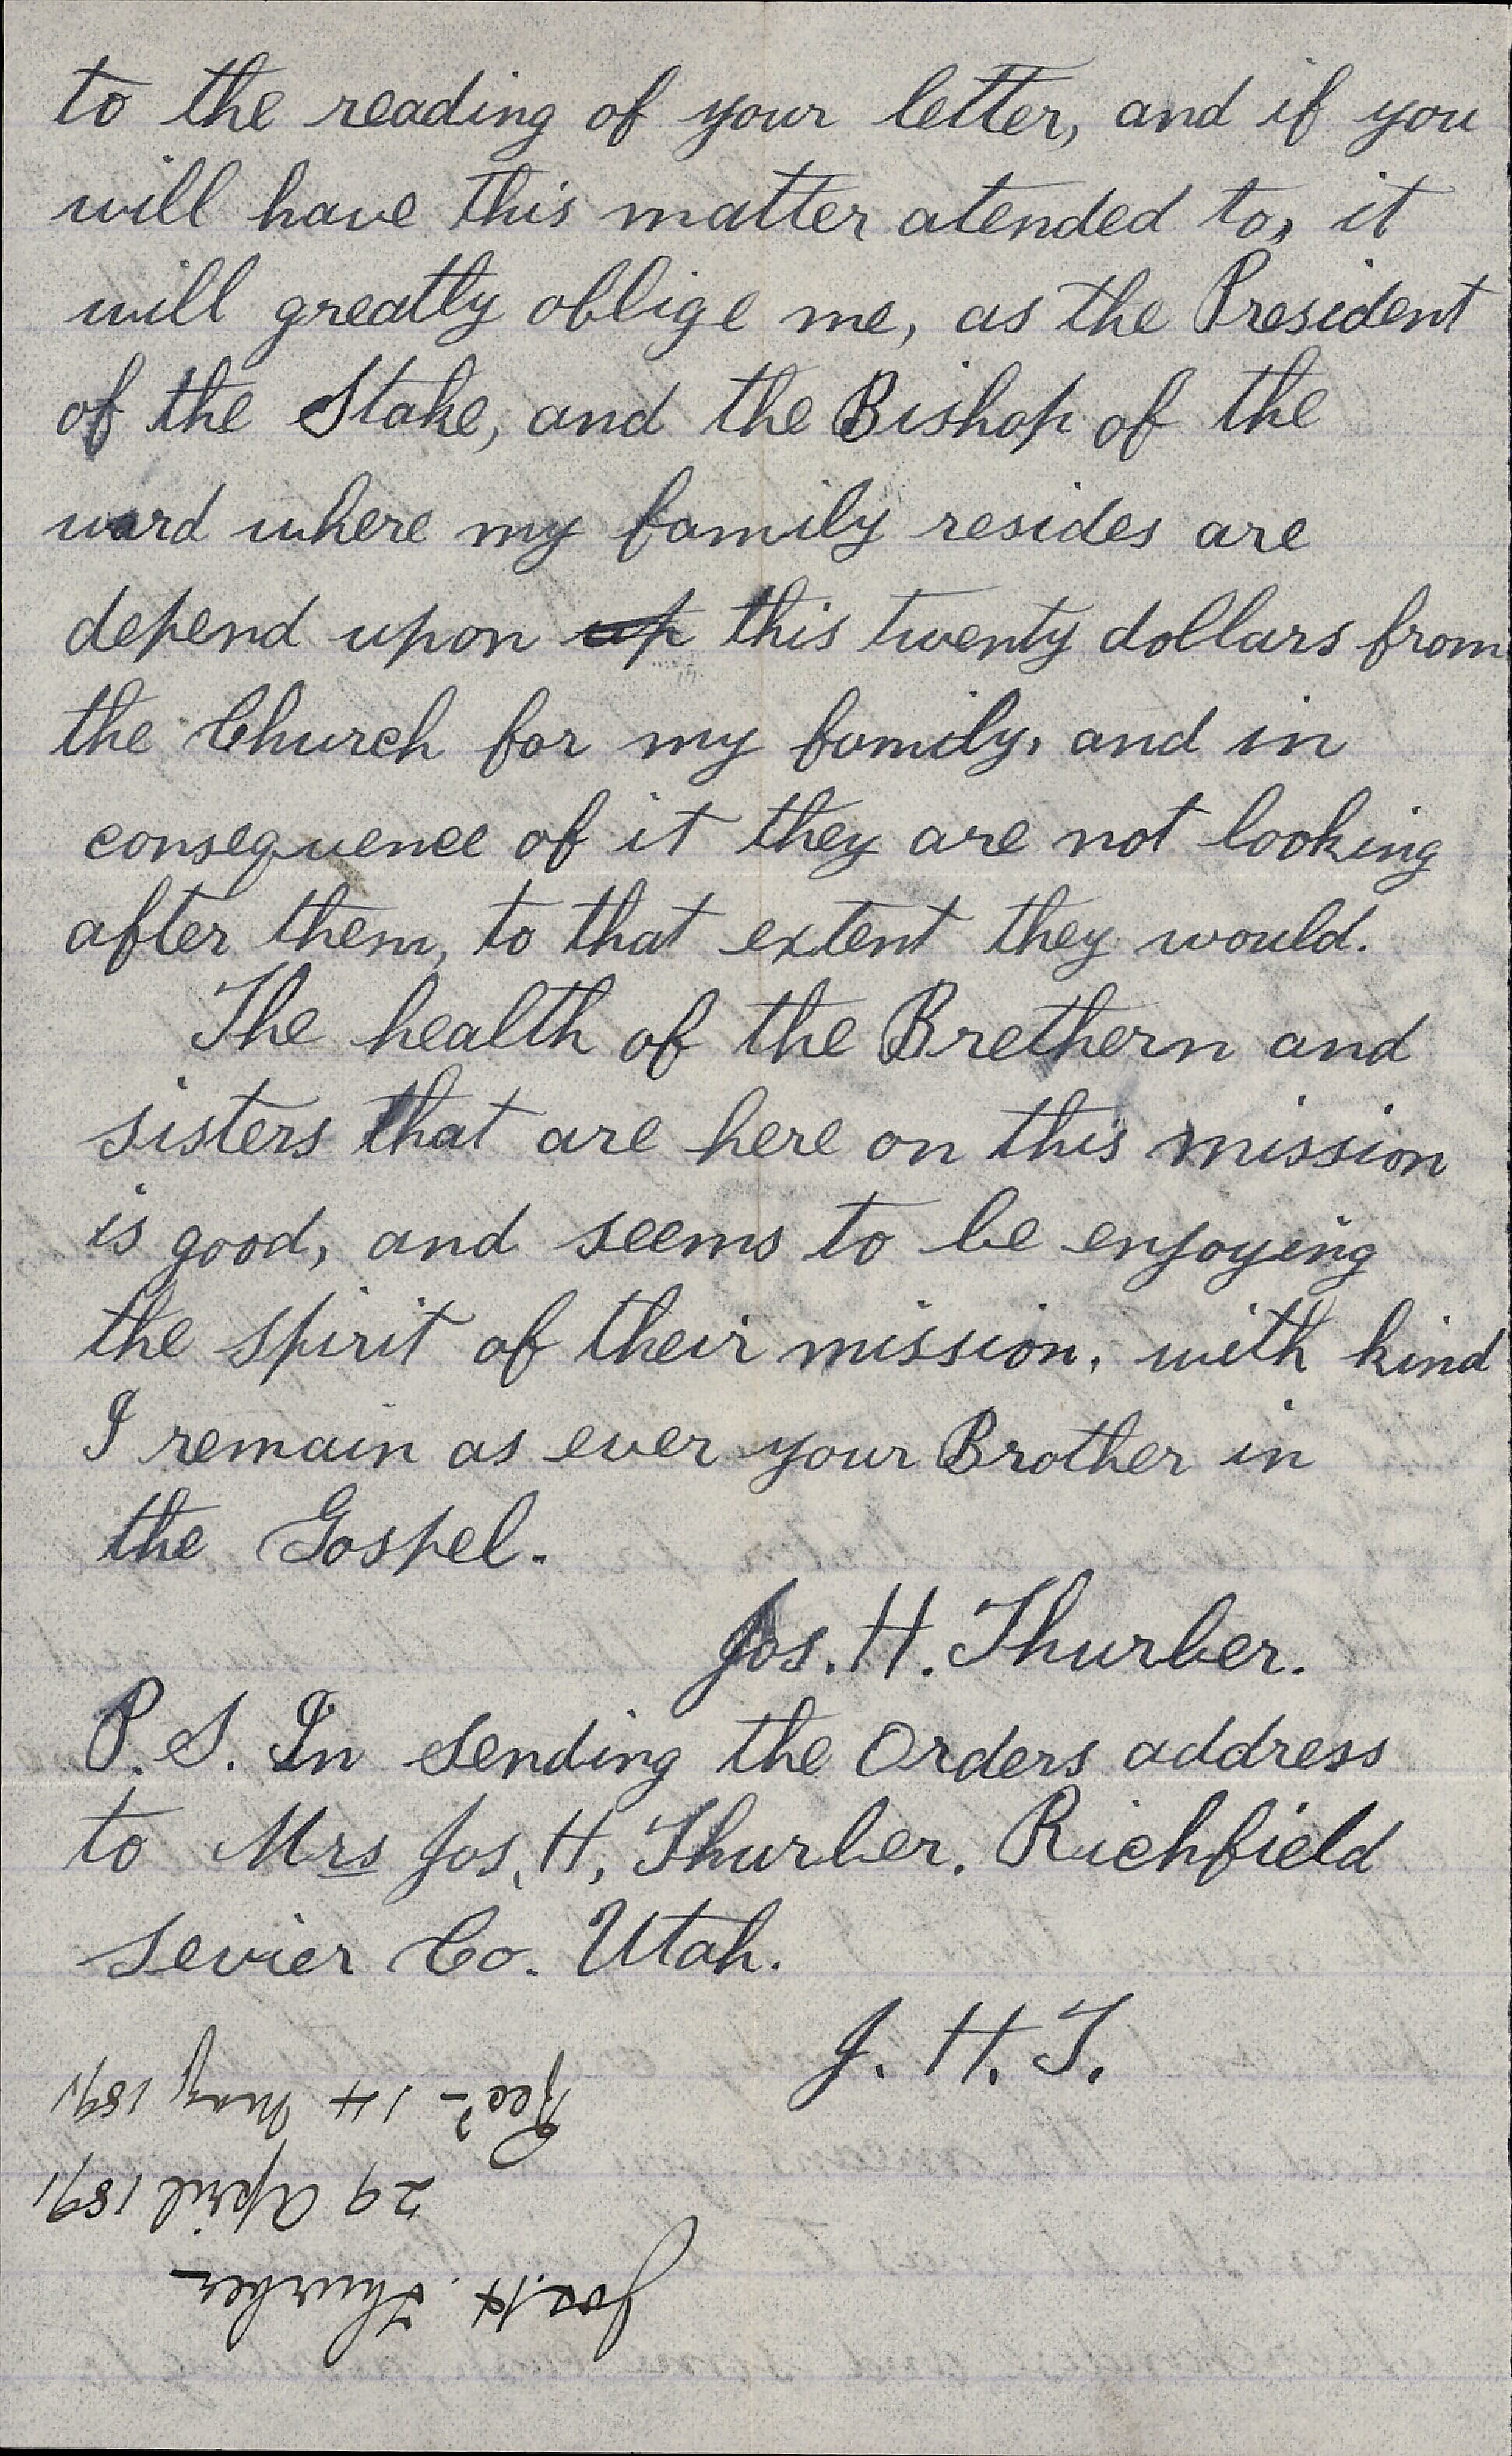 to the reading of your letter, and if you
will have this matter atended to, it
will greatly oblige me, as the President
of the Stake, and the Bishop of the
ward where my family resides are
depend upon up this twenty dollars from
the Church for my family, and in
consequence of it they are not looking
after them, to that extent they would.
The health of the Brethern and
sisters that are here on this mission
is good, and seems to be enjoying
the spirit of their mission, with kind
I remain as ever your Brother in
the Gospel.
Jos. H. Thurber.
P.S. In sending the Orders address
to Mrs Jos. H. Thurber. Richfield
Sevier Co. Utah.
J. H. T.
Jos. H. Thurber
29 April 1891
Recd 14 May 1891